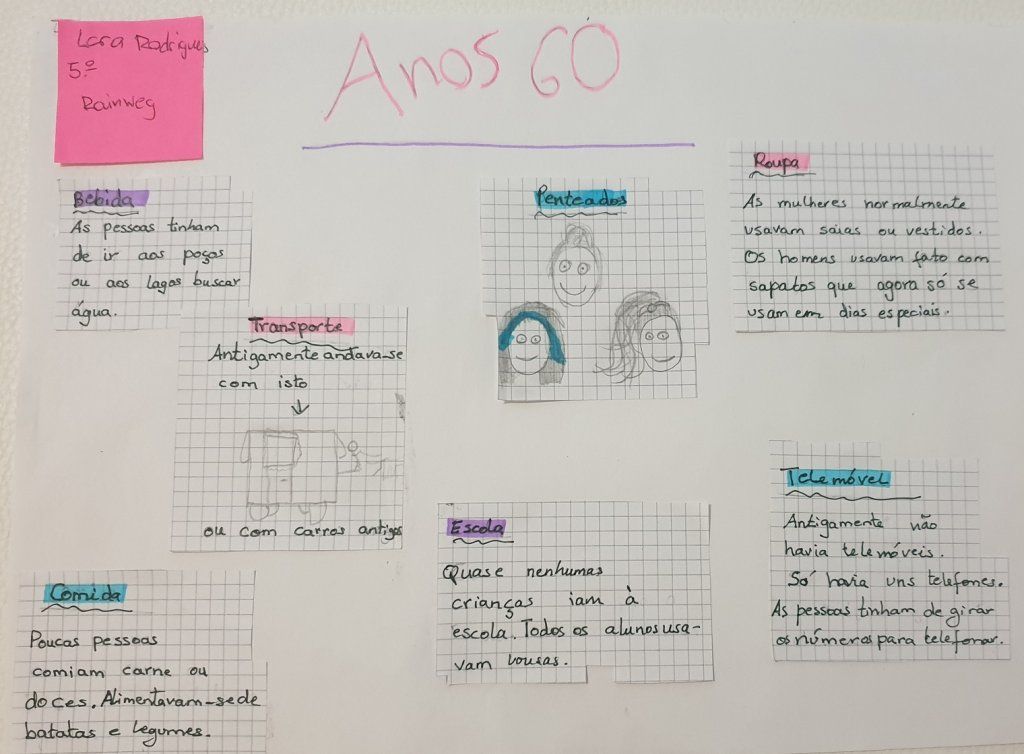 Lara Rodrigues
5.º
Rainweg
Anos 60
Bebida
As pessoas tinham
de ir aos poços
ou aos lagos buscar
água.
Transporte
Antigamente andava-se
com isto
ou com carros antigos
Comida
Poucas pessoas
comiam carne ou
doces. Alimentavam-se de
batatas e legumes.
Penteados
Escola
Quase nenhumas
crianças iam à
escola. Todos os alunos usa-
vam lousas.
Roupa
As mulheres normalmente
usavam saias ou vestidos.
Os homens usavam fato com
sapatos que agora só se
usam em dias especiais.
Telemóvel
Antigamente não
havia telemóveis.
Só havia uns telefones.
As pessoas tinham de girar
os números para telefonar.